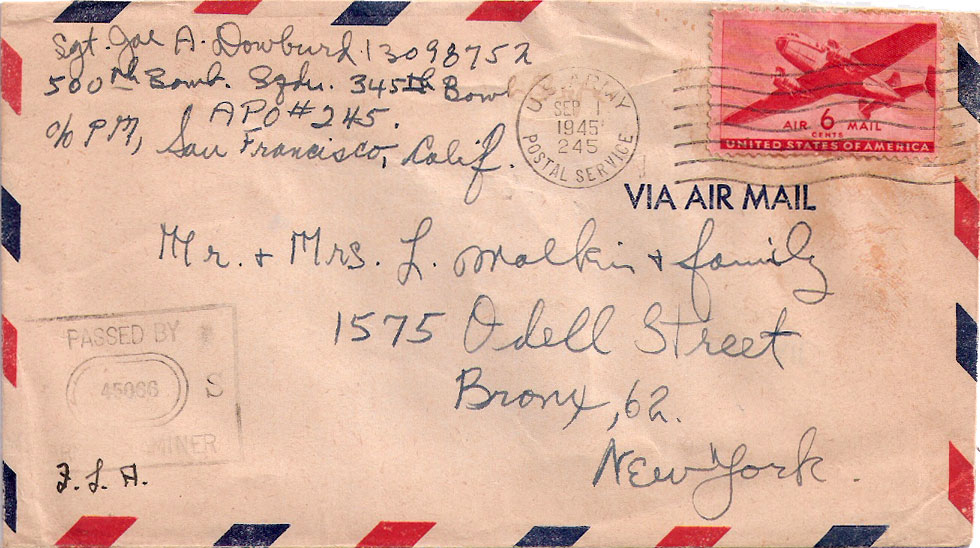 Sgt. Joe A. Dowburd 13098752
500th Bomb. Sqdn. 345th Bomb
APO #245.
c/o PM, San Francisco, Calif.
U.S. ARMY
SEP 1
1945
245
POSTAL SERVICE
AIR 6 MAIL
CENTS
UNITED STATES OF AMERICA
VIA AIR MAIL
Mr. + Mrs. L. Malkin + family
1575 Odell Street
Bronx, 62.
New York.
PASSED BY
S
EXAMINER